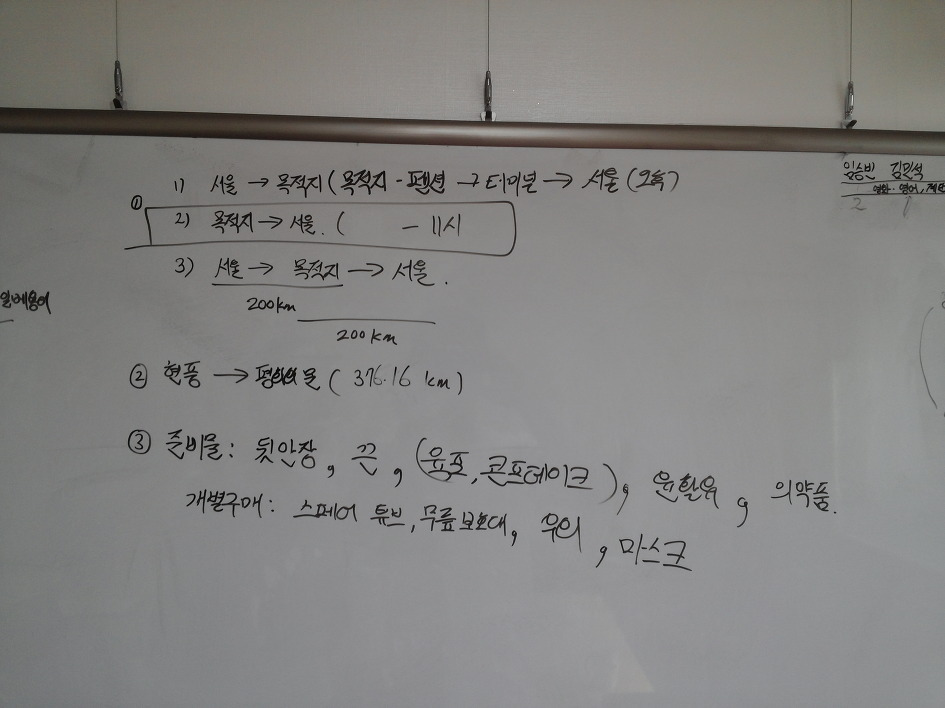 1) 서울 → 목적지 (목적지 - 펜션 → 터미널 → 서울 (오후)
① 2) 목적지 → 서울. ( - 11시
3) 서울 → 목적지 → 서울.
200km
200km
② 현풍 → ( 376.16 km )
③ 준비물: 뒷안장, 끈, (육포, 콘프레이크), 윤활유, 의약품.
개별구매: 스페어 튜브, 무릎보호대, 우의, 마스크
임승빈 김민석
영화·영어,
2 1